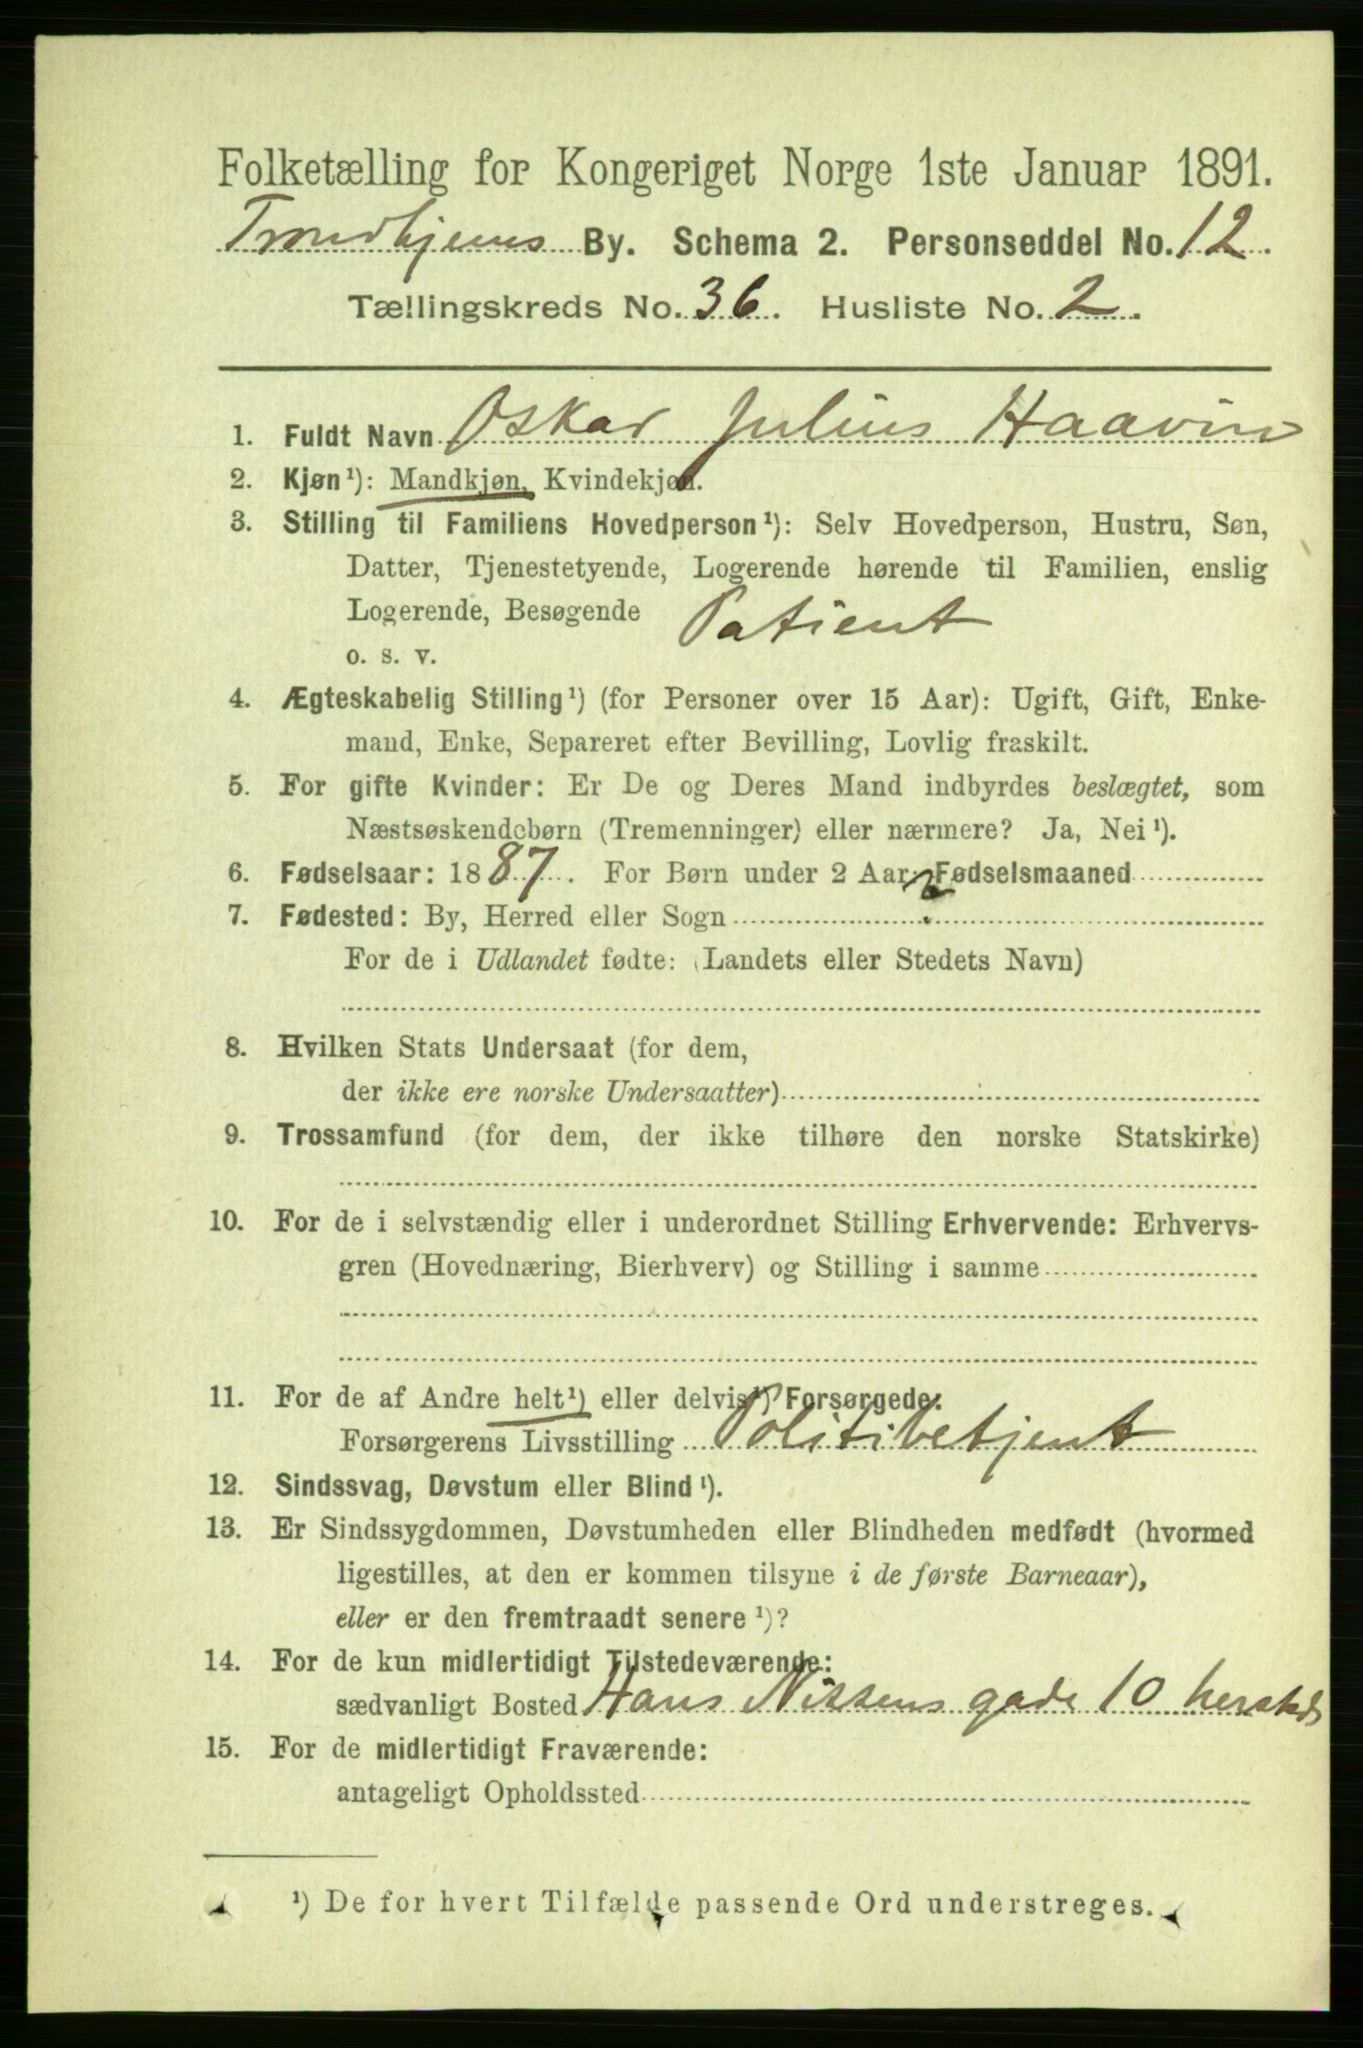 Folketælling for Kongeriget Norge 1ste Januar 1891.
Trondhjems By. Schema 2. Personseddel No. 12.
Tællingskreds No. 36. Husliste No. 2.
1. Fuldt Navn Oskar Julius Haavin
2. Kjøn¹): Mandkjøn, Kvindekjøn.
3. Stilling til Familiens Hovedperson¹): Selv Hovedperson, Hustru, Søn,
Datter, Tjenestetyende, Logerende hørende til Familien, enslig
Logerende, Besøgende Patient
o. s. v.
4. Ægteskabelig Stilling¹) (for Personer over 15 Aar): Ugift, Gift, Enke-
mand, Enke, Separeret efter Bevilling, Lovlig fraskilt.
5. For gifte Kvinder: Er De og Deres Mand indbyrdes beslægtet, som
Næstsøskendebørn (Tremenninger) eller nærmere? Ja, Nei¹).
6. Fødselsaar: 1887. For Børn under 2 Aar: Fødselsmaaned
7. Fødested: By, Herred eller Sogn ?
For de i Udlandet fødte: (Landets eller Stedets Navn)
8. Hvilken Stats Undersaat (for dem,
der ikke ere norske Undersaatter)
9. Trossamfund (for dem, der ikke tilhøre den norske Statskirke)
10. For de i selvstændig eller i underordnet Stilling Erhvervende: Erhvervs-
gren (Hovednæring, Bierhverv) og Stilling i samme
11. For de af Andre helt¹) eller delvis¹) Forsørgede:
Forsørgerens Livsstilling Politibetjent
12. Sindssvag, Døvstum eller Blind¹).
13. Er Sindssygdommen, Døvstumheden eller Blindheden medfødt (hvormed
ligestilles, at den er kommen tilsyne i de første Barneaar),
eller er den fremtraadt senere¹)?
14. For de kun midlertidigt Tilstedeværende:
sædvanligt Bosted Hans Nissens gade 10 hersteds
15. For de midlertidigt Fraværende:
antageligt Opholdssted
¹) De for hvert Tilfælde passende Ord understreges.